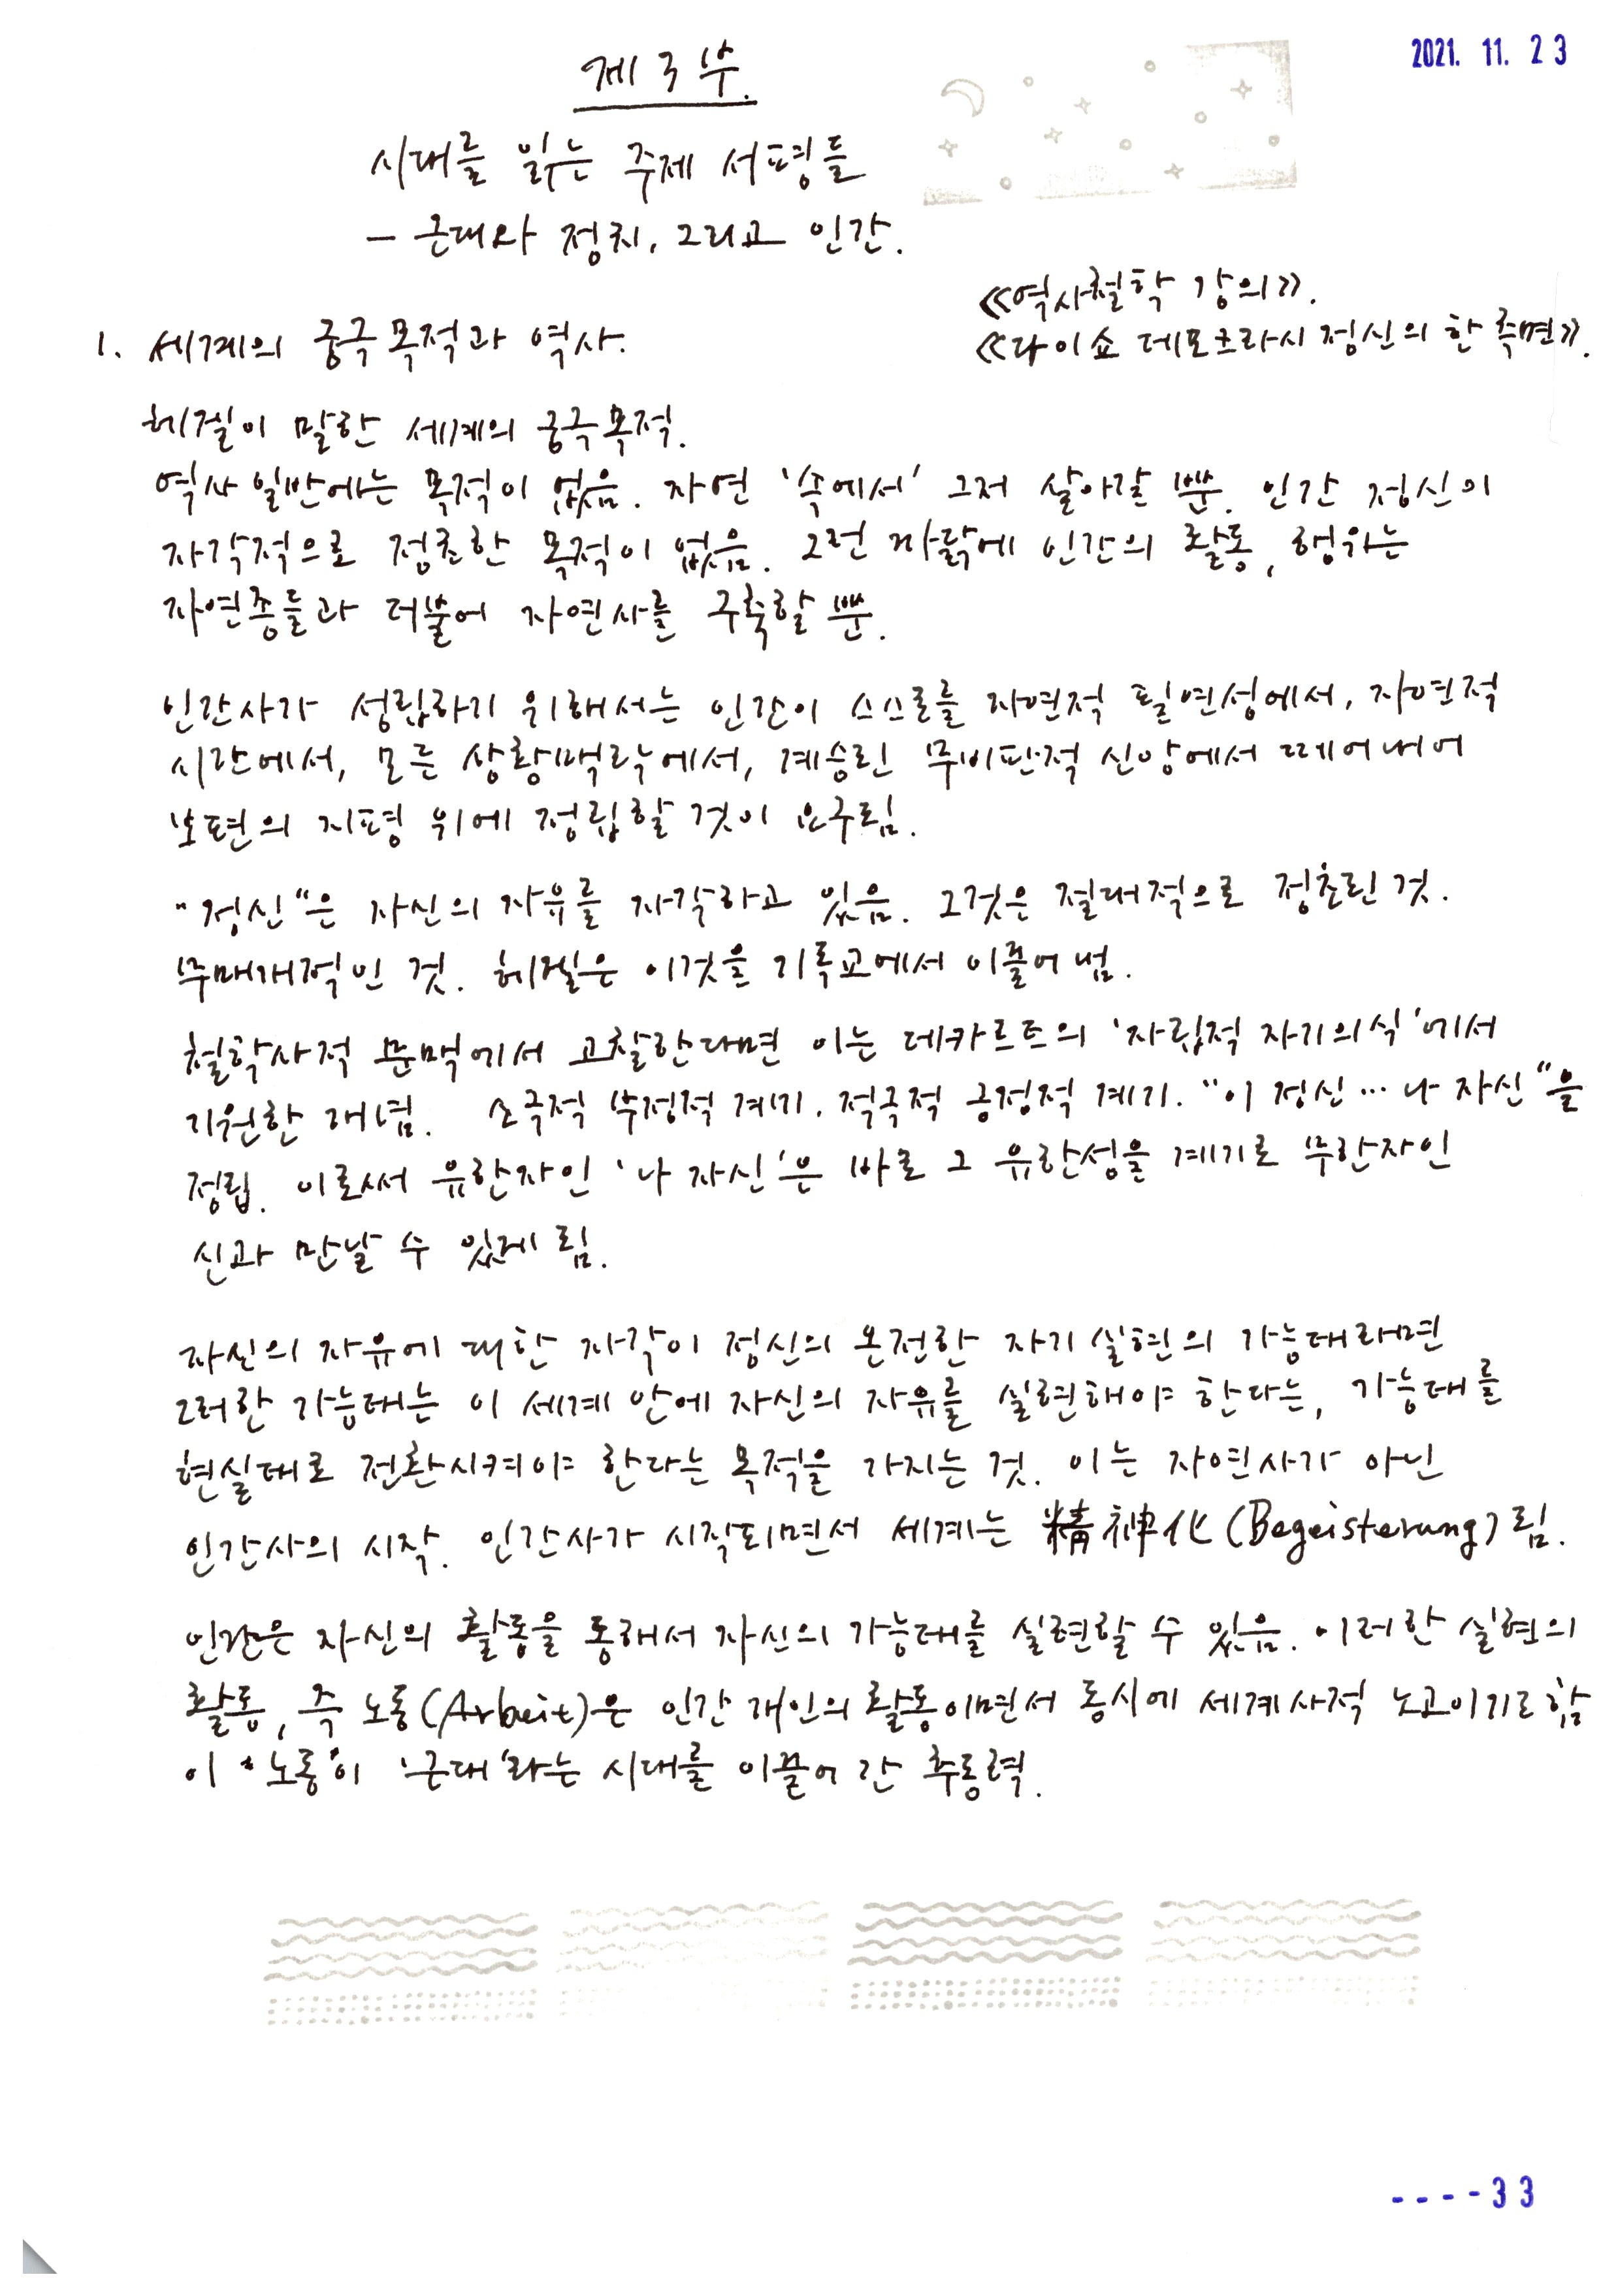 2021. 11. 23
제3부.
시대를 읽는 주제 서평들
- 근대와 정치, 그리고 인간.
《역사철학 강의》.
《다이쇼 데모크라시 정신의 한 측면》.
1. 세계의 궁극목적과 역사.
헤겔이 말한 세계의 궁극목적.
역사 일반에는 목적이 없음. 자연 '속에서' 그저 살아갈 뿐. 인간 정신의
자각적으로 정초한 목적이 없음. 그런 까닭에 인간의 활동, 행위는
자연종들과 더불어 자연사를 구축할 뿐.
인간사가 성립하기 위해서는 인간이 스스로를 자연적 필연성에서, 자연적
시간에서, 모든 상황맥락에서, 계승된 무비판적 신앙에서 떼어내어
보편의 지평 위에 정립할 것이 요구됨.
"정신"은 자신의 자유를 자각하고 있음. 그것은 절대적으로 정초된 것.
무매개적인 것. 헤겔은 이것을 기독교에서 이끌어 냄.
철학사적 문맥에서 고찰한다면 이는 데카르트의 '자립적 자기의식'에서
기원한 개념. 소극적 부정적 계기. 적극적 긍정적 계기. "이 정신… 나 자신"을
정립. 이로써 유한자인 '나 자신'은 바로 그 유한성을 계기로 무한자인
신과 만날 수 있게 됨.
자신의 자유에 대한 자각이 정신의 온전한 자기 실현의 가능태라면
그러한 가능태는 이 세계 안에 자신의 자유를 실현해야 한다는, 가능태를
현실태로 전환시켜야 한다는 목적을 가지는 것. 이는 자연사가 아닌
인간사의 시작. 인간사가 시작되면서 세계는 精神化(Begeisterung)됨.
인간은 자신의 활동을 통해서 자신의 가능태를 실현할 수 있음. 이러한 실현의
활동, 즉 노동(Arbeit)은 인간 개인의 활동이면서 동시에 세계사적 노고이기도 함
이 '노동'이 '근대'라는 시대를 이끌어 간 추동력.
----33